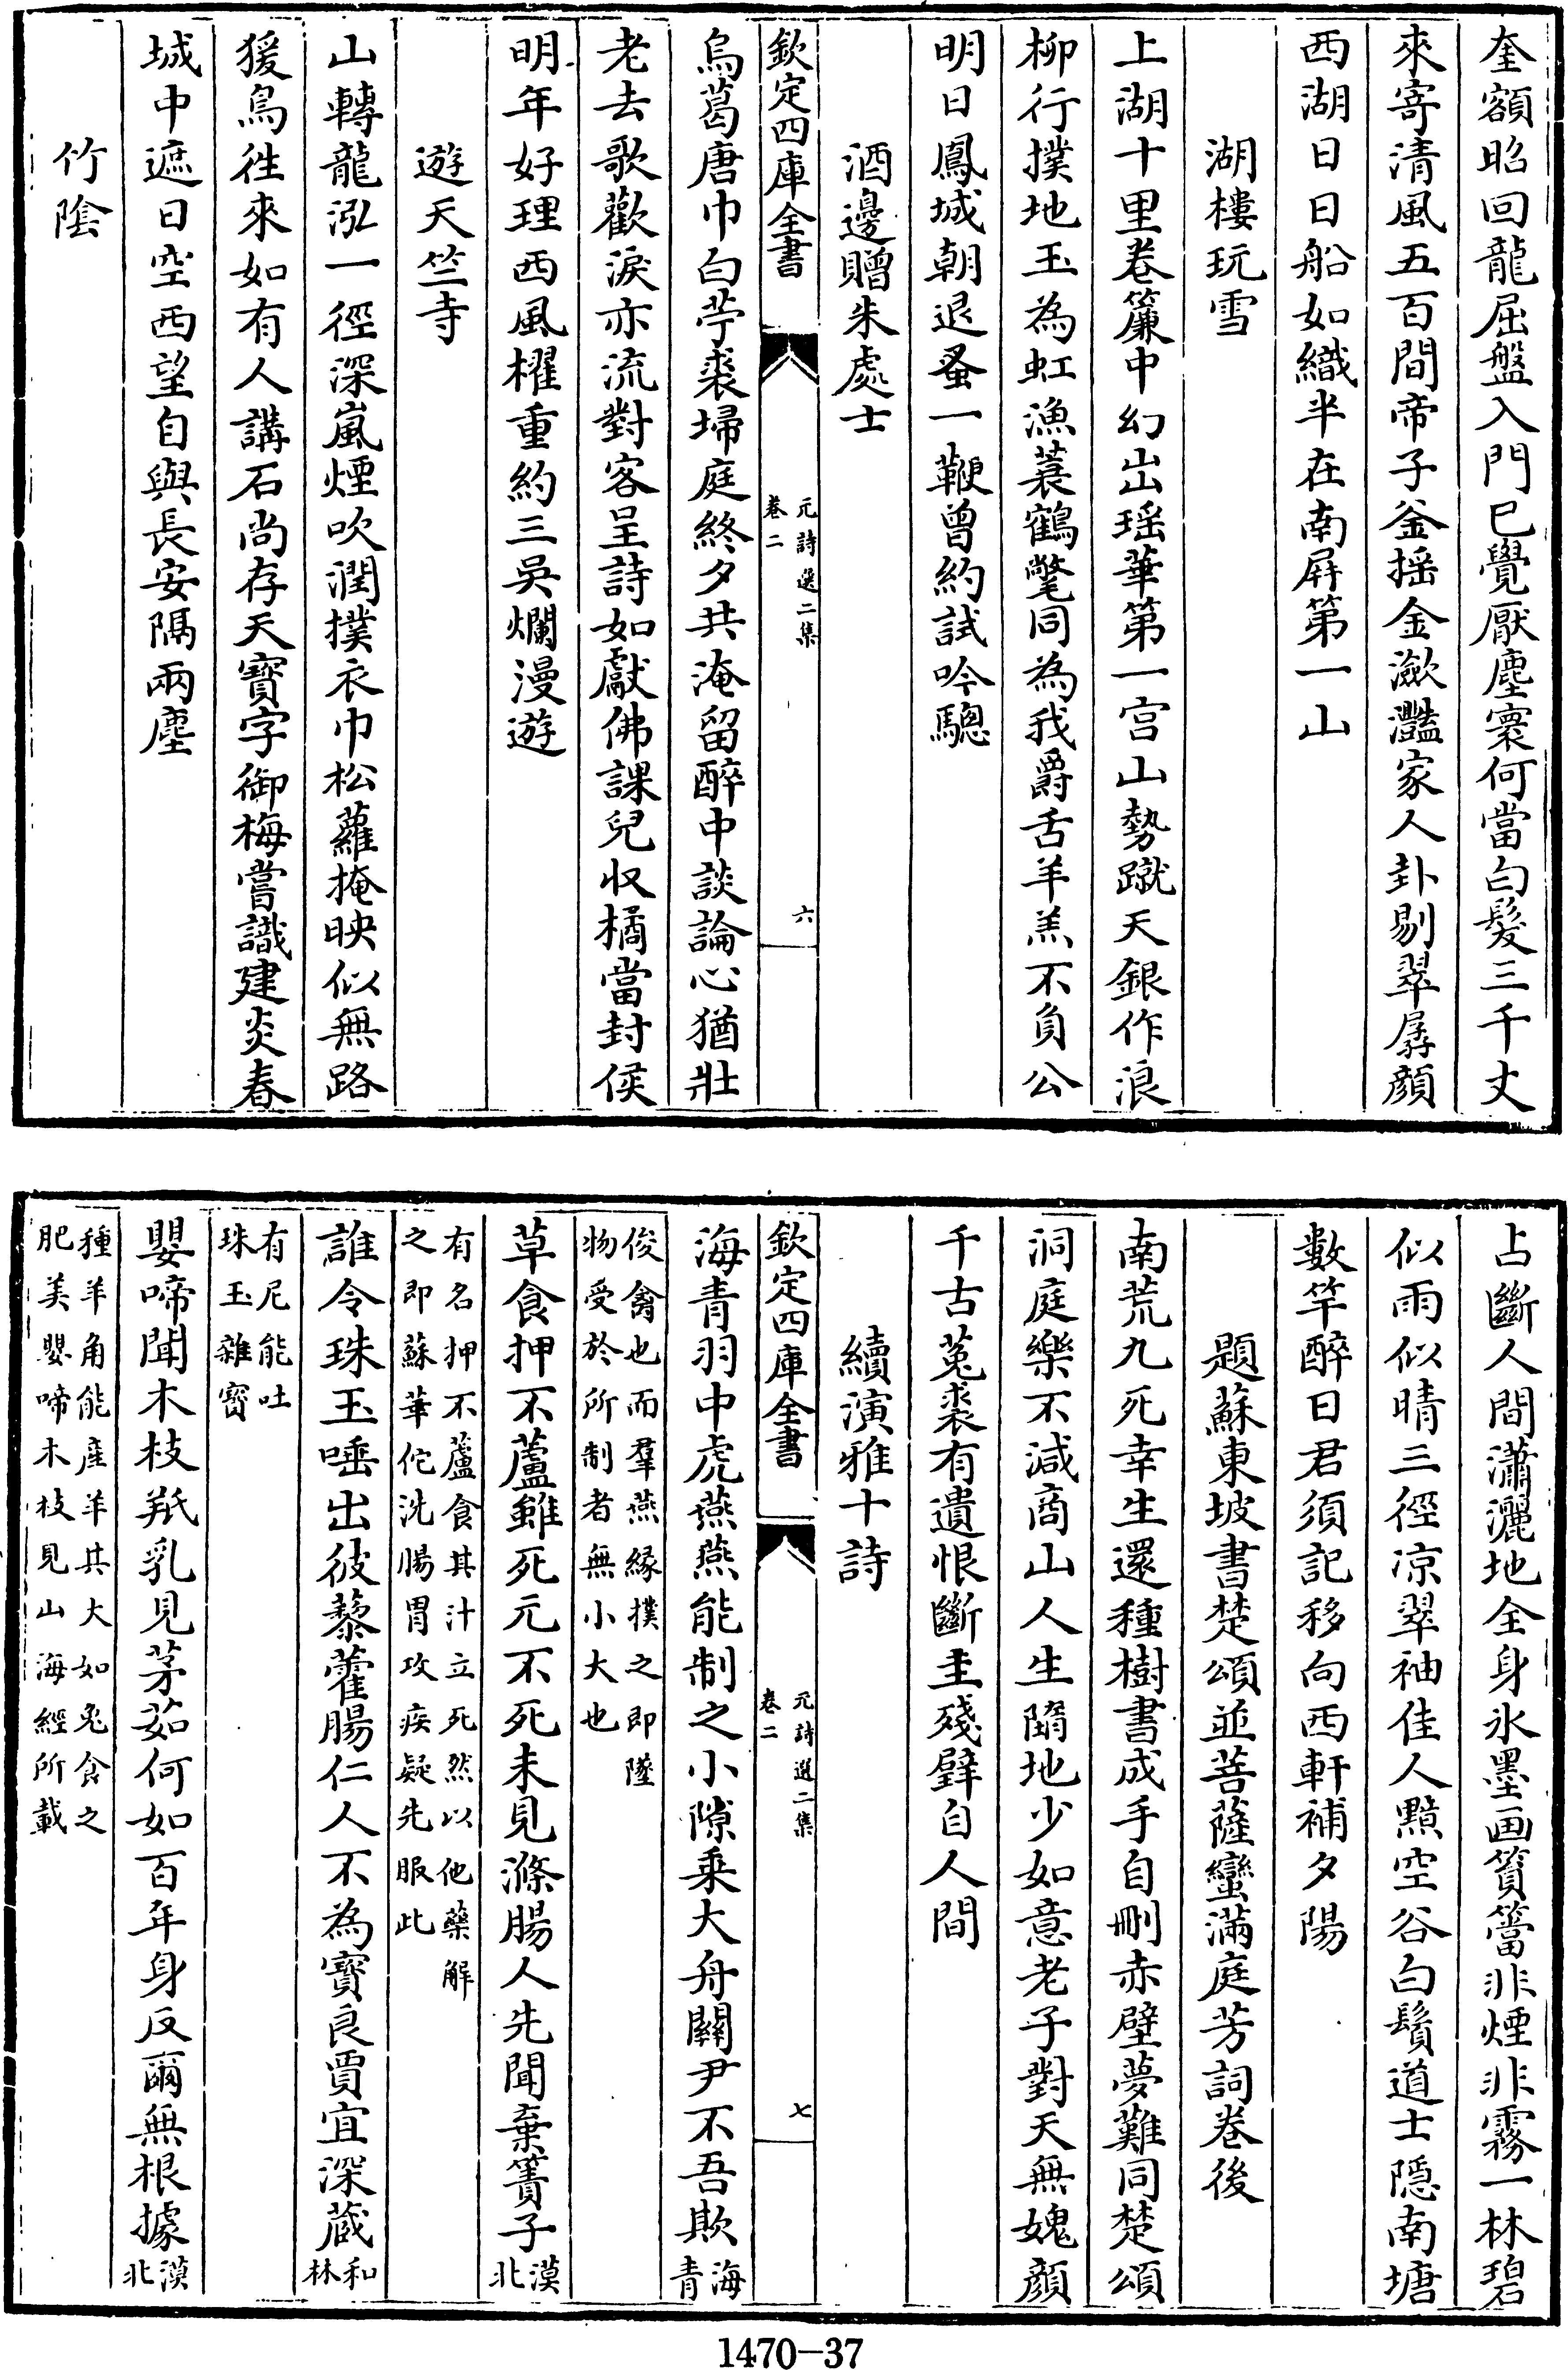 奎額昭回龍屈盤入門已覺厭塵寰何當白髮三千丈
來寄清風五百間帝子釜搖金瀲灩家人卦剔翠孱顔
西湖日日船如織半在南屏第一山
湖樓玩雪
上湖十里卷簾中幻出瑶華第一宫山勢蹴天銀作浪
柳行撲地玉為虹漁蓑鶴氅同為我爵舌羊羔不負公
明日鳳城朝退蚤一鞭曾約試吟驄
酒邊贈朱處士
欽定四庫全書
元詩選二集
卷二
六
烏葛唐巾白苧裘埽庭終夕共淹留醉中談論心猶壯
老去歌歡淚亦流對客呈詩如獻佛課兒収橘當封侯
明年好理西風櫂重約三吳爛漫遊
遊天竺寺
山轉龍泓一徑深嵐煙吹潤撲衣巾松蘿掩映似無路
猨鳥徃來如有人講石尚存天寶字御梅嘗識建炎春
城中遮日空西望自與長安隔兩塵
竹陰
占斷人間瀟灑地全身氷墨画篔簹非煙非霧一林碧
似雨似晴三徑凉翠袖佳人點空谷白鬚道士隠南塘
數竿醉日君須記移向西軒補夕陽
題蘇東坡書楚頌並菩薩蠻滿庭芳詞卷後
南荒九死幸生還種樹書成手自刪赤壁夢難同楚頌
洞庭樂不減商山人生隨地少如意老子對天無媿顔
千古菟裘有遺恨斷圭殘璧自人間
續演雅十詩
欽定四庫全書
元詩選二集
卷二
七
海青羽中虎燕燕能制之小隙乘大舟關尹不吾欺海青
俊禽也而羣燕緣撲之即墜
物受於所制者無小大也
草食押不蘆雖死元不死未見滌腸人先聞棄簀子漠北
有名押不蘆食其汁立死然以他藥解
之即蘇華佗洗腸胃攻疾疑先服此
誰令珠玉唾出彼藜藿腸仁人不為寳良賈宜深蔵和林
有尼能吐
珠玉雜寳
嬰啼聞木枝羝乳見茅茹何如百年身反爾無根據漠北
種羊角能産羊其大如兔食之
肥美嬰啼木枝見山海經所載
1470—37